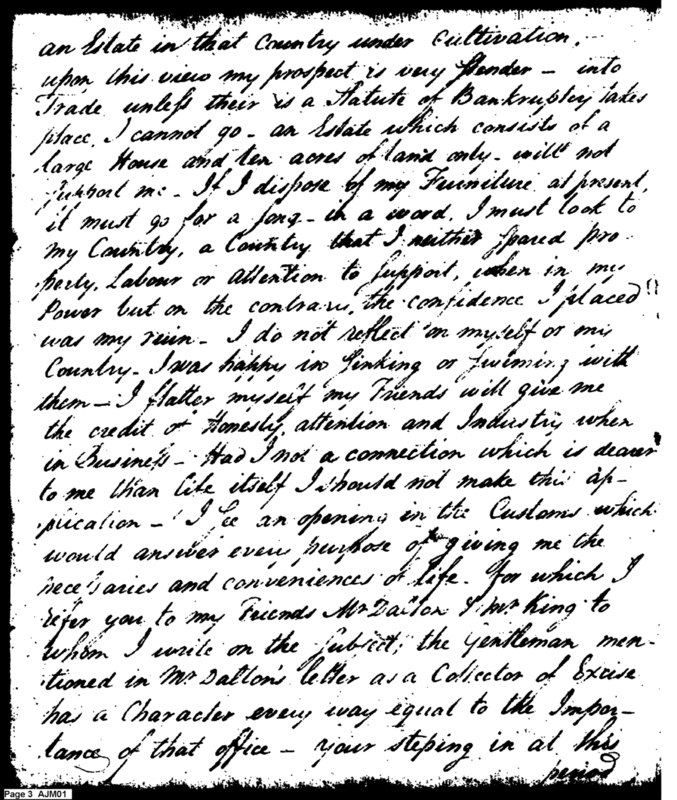 an Estate in that Country under Cultivation.
upon this view my prospect is very slender – into
Trade unless their is a Statute of Bankruptcy takes
place, I cannot go – an Estate which consists of a
large House and ten acres of land only – will not
support me – If I dispose of my Furniture at present,
it must go for a song – in a word, I must look to
my Country, a Country that I neither spared pro-
perty, Labour or attention to support, when in my
Power but on the contrary, the confidence I placed
was my ruin – I do not reflect on myself or my
Country – I was happy in sinking or swiming with
them – I flatter myself my Friends will give me
the credit of Honesty, attention and Industry when
in Business – Had I not a connection which is dearer
to me than life itself I should not make this ap-
plication – I see an opening in the Customs which
would answer every purpose of giving me the
necessaries and conveniences of life – for which I
refer you to my Friends Mr Dalton & Mr King to
whom I write on the subject; the Gentleman men-
tioned in Mr Dalton's letter as a Collector of Excise
has a Character every way equal to the Impor-
tance of that office – your steping in at this
period
Page 3 AJM01